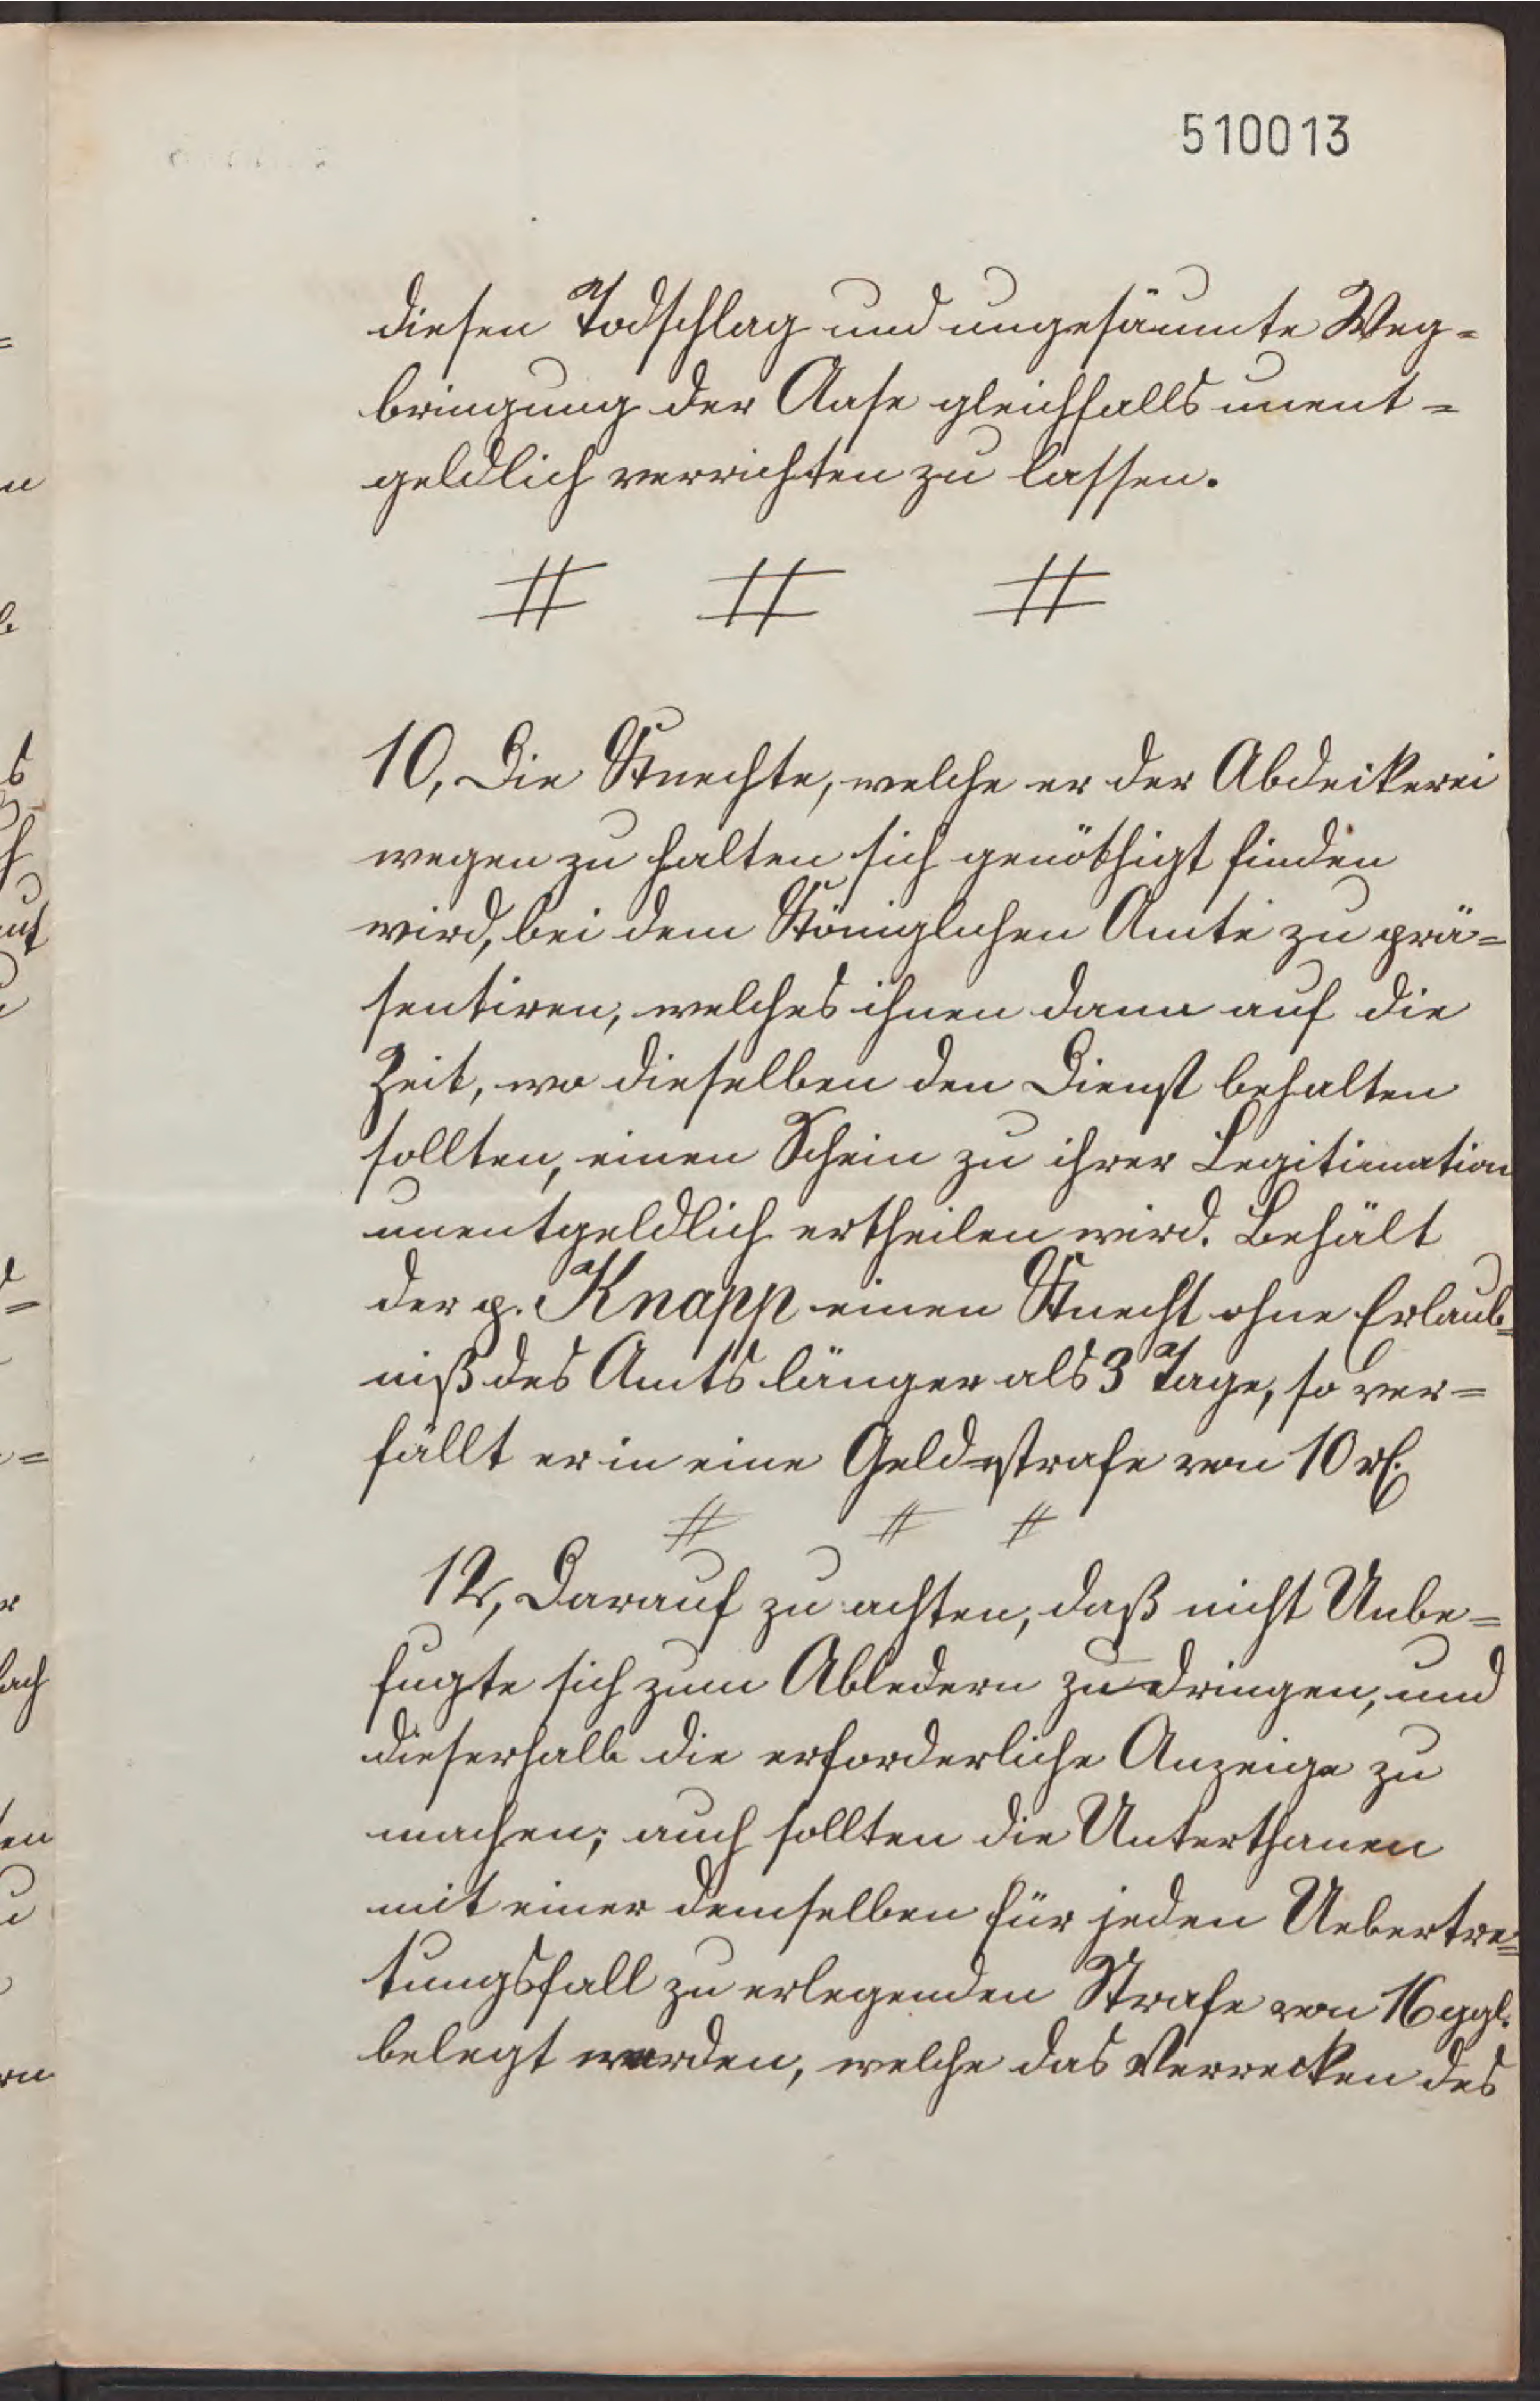 510013
diesen Todschlag und ungesäumte Weg=
bringung der Aase gleichfalls unent=
geldlich verrichten zu lassen.
# # #
10, Die Knechte, welche er der Abdeckerei
wegen zu halten sich genöthigt finden
wird, bei dem Königlichen Amte zu prä=
sentiren, welches ihnen dann auf die
Zeit, wo dieselben den Dienst behalten
sollten, einen Schein zu ihrer Legitimation
unentgeldlich ertheilen wird. Behält
der p. Knapp einen Knecht ohne Erlaub=
niß des Amts länger als 3 Tage, so ver=
fällt er in eine Geldstrafe von 10 rl.
# # #
12, Darauf zu achten, daß nicht Unbe=
fugte sich zum Abledern zudringen, und
dieserhalb die erforderliche Anzeige zu
machen; auch sollten die Unterthanen
mit einer demselben für jeden Uebertre=
tungsfall zu erlegenden Strafe von 16 ggl.
belegt werden, welche das Verrecken des